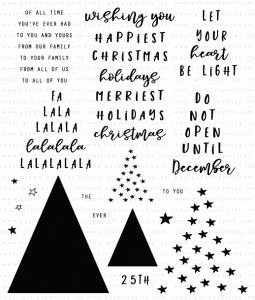 OF ALL TIME
YOU'VE EVER HAD
TO YOU AND YOURS
FROM OUR FAMILY
TO YOUR FAMILY
FROM ALL OF US
TO ALL OF YOU
FA
LALA
LALALA
lalalala
LALALALALA
wishing you
HAPPIEST
CHRISTMAS
holidays
MERRIEST
HOLIDAYS
christmas
LET
YOUR
heart
BE LIGHT
DO
NOT
OPEN
UNTIL
December
THE
EVER
TO YOU
25TH